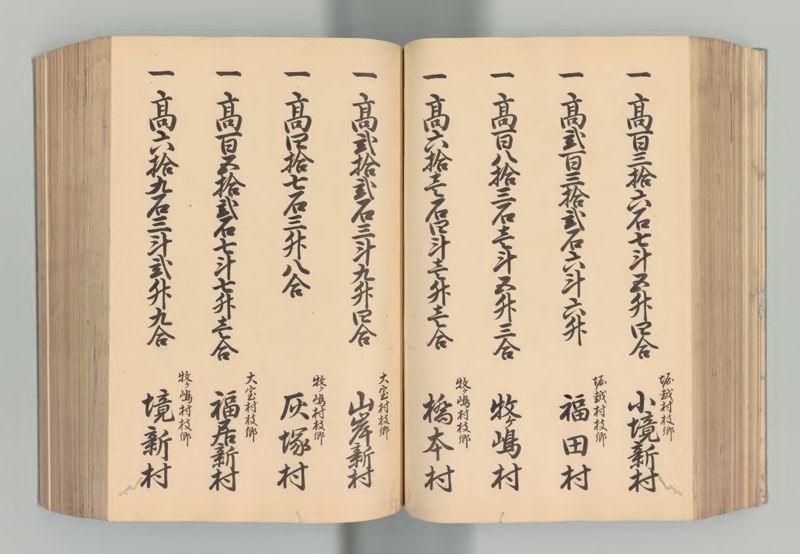 一 高百三拾六石七斗五升四合
堀越村枝郷
小境新村
一 高弐百三拾弐石六斗六升
堀越村枝郷
福田村
一 高百八拾三石壱斗五升三合
牧ケ嶋村
一 高六拾壱石四斗壱升壱合
牧ケ嶋村枝郷
橋本村
一 高弐拾弐石三斗九升四合
大宝村枝郷
山岸新村
一 高四拾七石三升八合
牧ケ嶋村枝郷
灰塚村
一 高百五拾弐石七斗七升壱合
大宝村枝郷
福居新村
一 高六拾九石三斗弐升九合
牧ケ嶋村枝郷
境新村